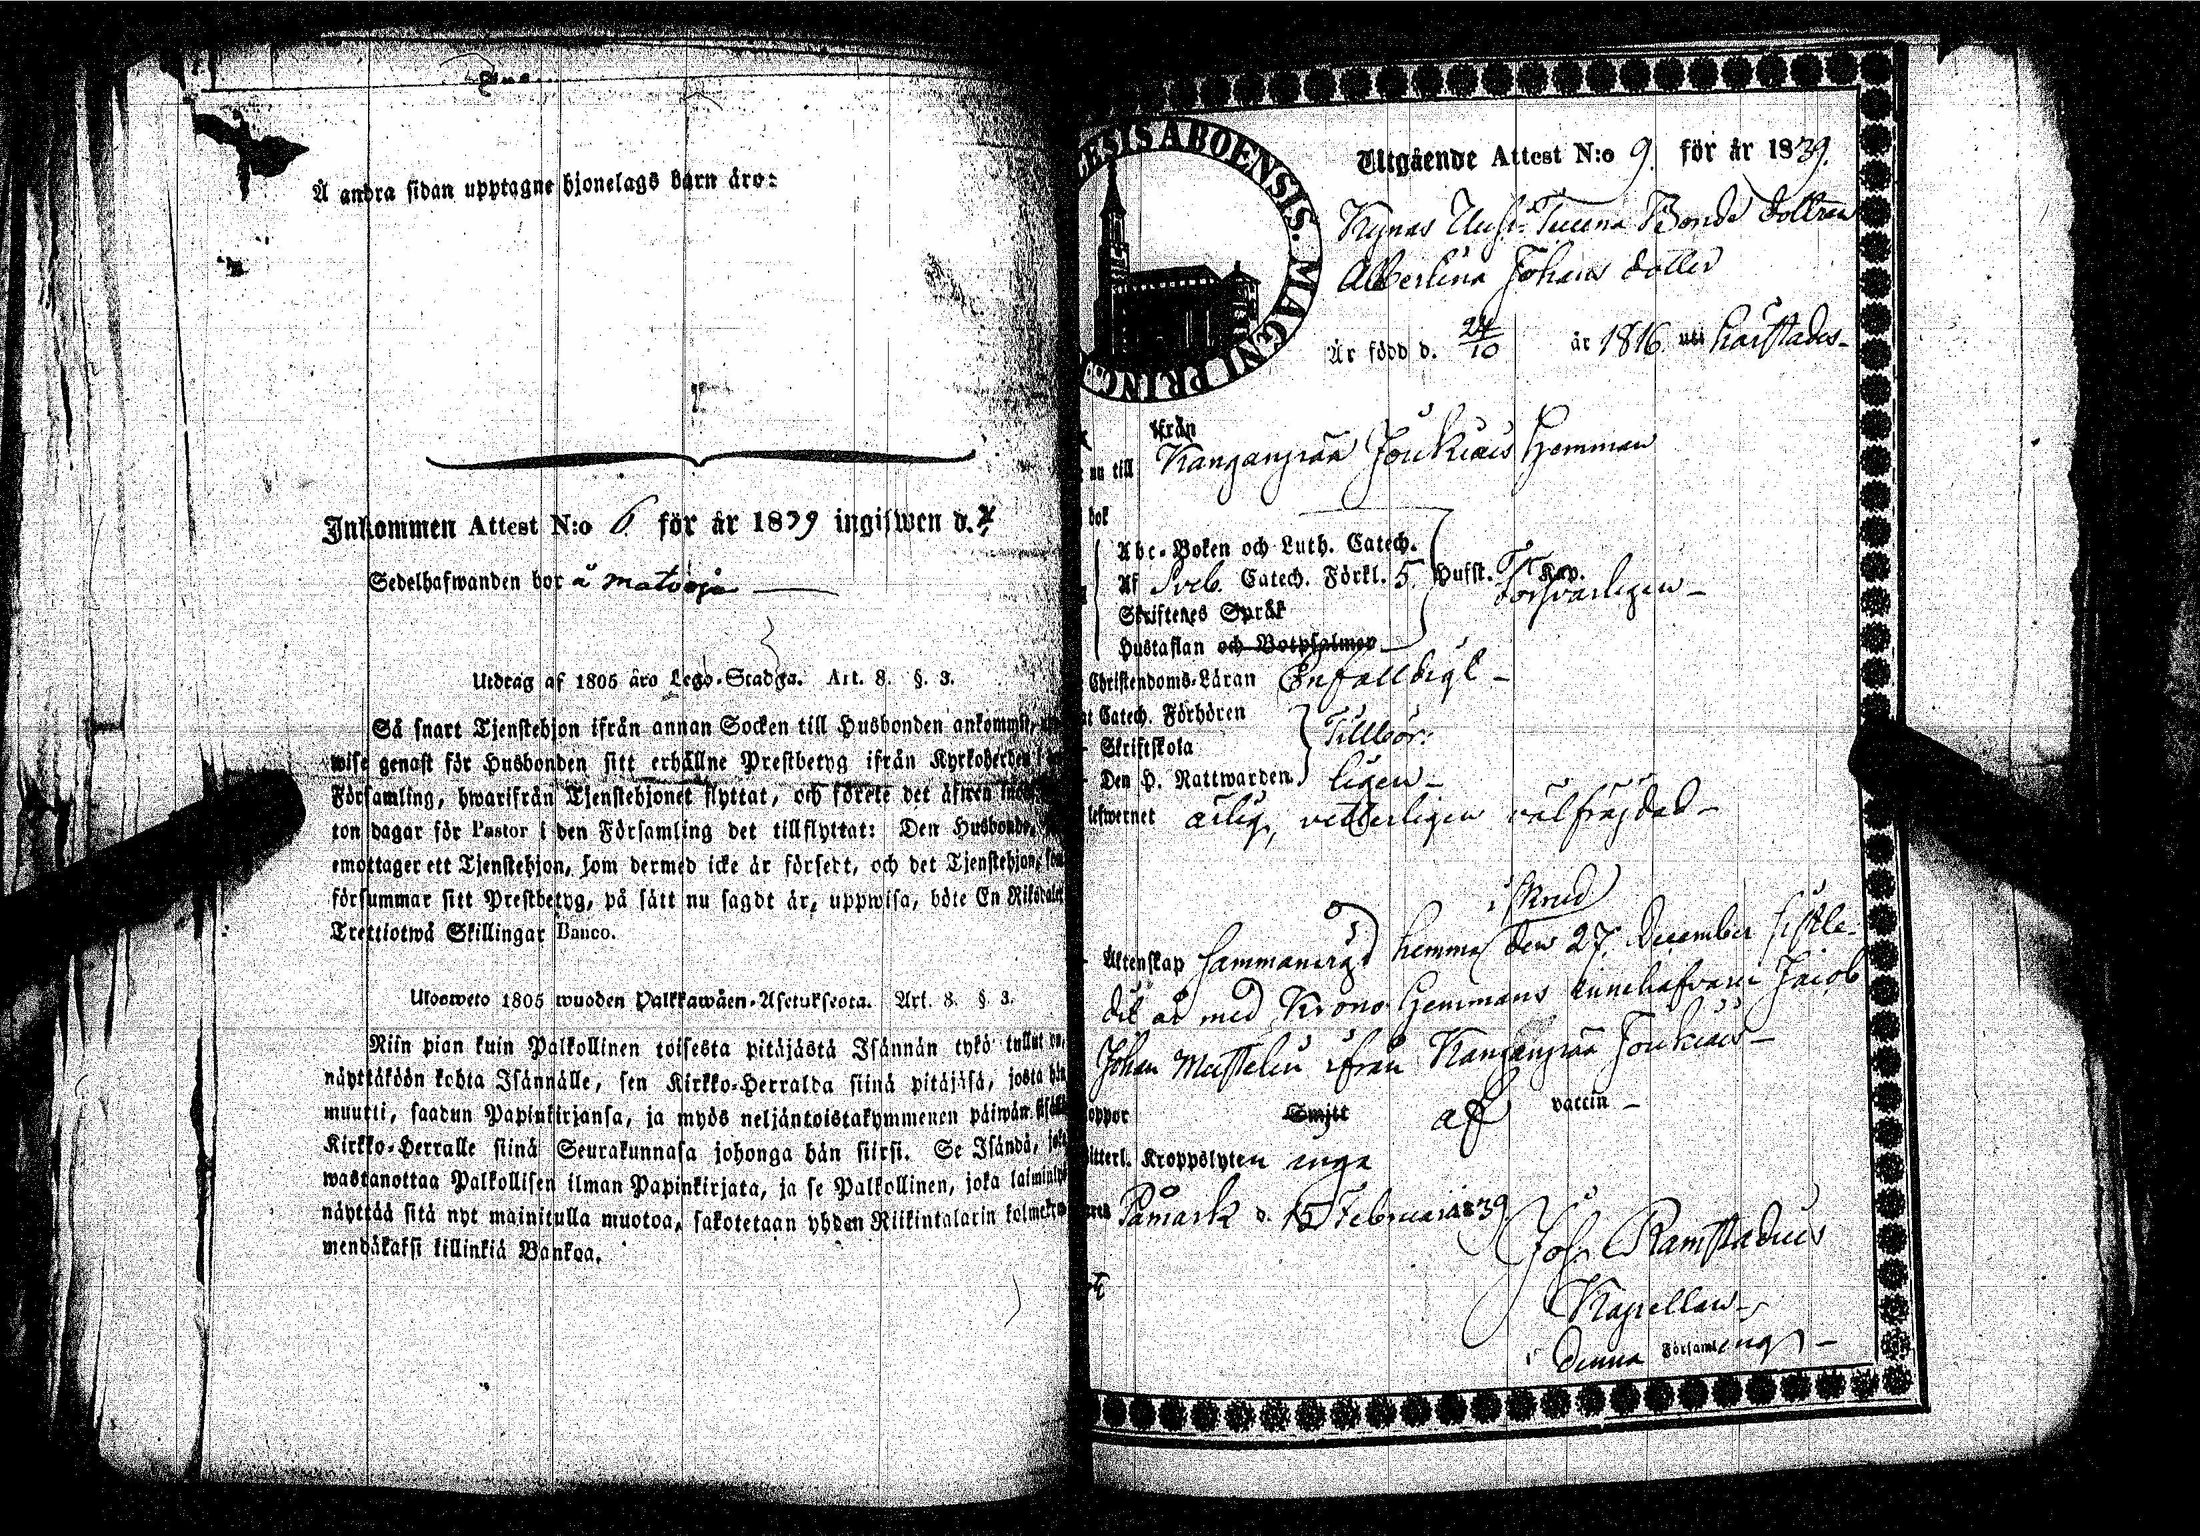 Å andra sidan upptagne hjonelags barn äro:
Inkommen Attest N:o 6 för år 1839 ingifwen d.
Sedelhafwanden bor å
Utdrag af 1805 års Lego-Stadga. Art. 8. §. 3.
Så snart Tjenstehjon ifrån annan Socken till Husbonden ankommit,
wise genast för Husbonden sitt erhållne Prestbetyg ifrån Kyrkoherden i
Församling, hwarifrån Tjenstehjonet flyttat, och förete det äfwen
ton dagar för Pastor i den Församling det tillflyttat: Den Husbonde,
emottager ett Tjenstehjon, som dermed icke är försedt, och det Tjenstehjon, som
försummar sitt Prestbetyg, på sätt nu sagdt är, uppwisa, böte En Riksdaler
Trettiotwå Skillingar Banco.
Ulosweto 1805 wuoden Palkkawäen-Asetuksesta. Art. 8. §. 3.
Niin pian kuin Palkollinen toisesta pitäjästä Isännän tykö tullut on,
näyttäköön kohta Isännälle, sen Kirkko-Herralda siinä pitäjäsä, josta hän
muutti, saadun Papinkirjansa, ja myös neljäntoistakymmenen päiwän
Kirkko-Herralle siinä Seurakunnasa johonga hän siirsi. Se Isändä, joka
wastanottaa Palkollisen ilman Papinkirjata, ja se Palkollinen, joka
näyttää sitä nyt mainitulla muotoa, sakotetaan yhden Riikintalarin
mendäkaksi killinkiä Bankoa.
ABOENSIS. MAGNI PRINC
Utgående Attest N:o 9. för år 1839.
Bonde dottren
Albertina Johans dotter
Är född d. 24/10 år 1816 uti härstädes
från
nu till Kanganpää Jonkiais Hemman
bok
Abc-Boken och Luth. Catech.
Af Sveb. Catech. Förkl. 5. Hufst. Försvarligen
Skriftenes Språk
Hustaflan och Botpsalmer
Christendoms-Läran Enfaldigt
Catech. Förhören
Skriftskola Tillbör-
Den H. Nattwarden ligen
lefwernet ärlig, vetterligen välfräjdad
i Brud
Äktenskap sammanvigd hemma den 27 December sistle-
dit år med Krono Hemmans innehafvare Jacob
Johan ifrån Kanganpää Jonkiais
koppor Smitt af vaccin
Kroppslyten inga
Påmark d. 15 Februari 1839
Joh. Ramstadius
Kapellan
i denna Församling